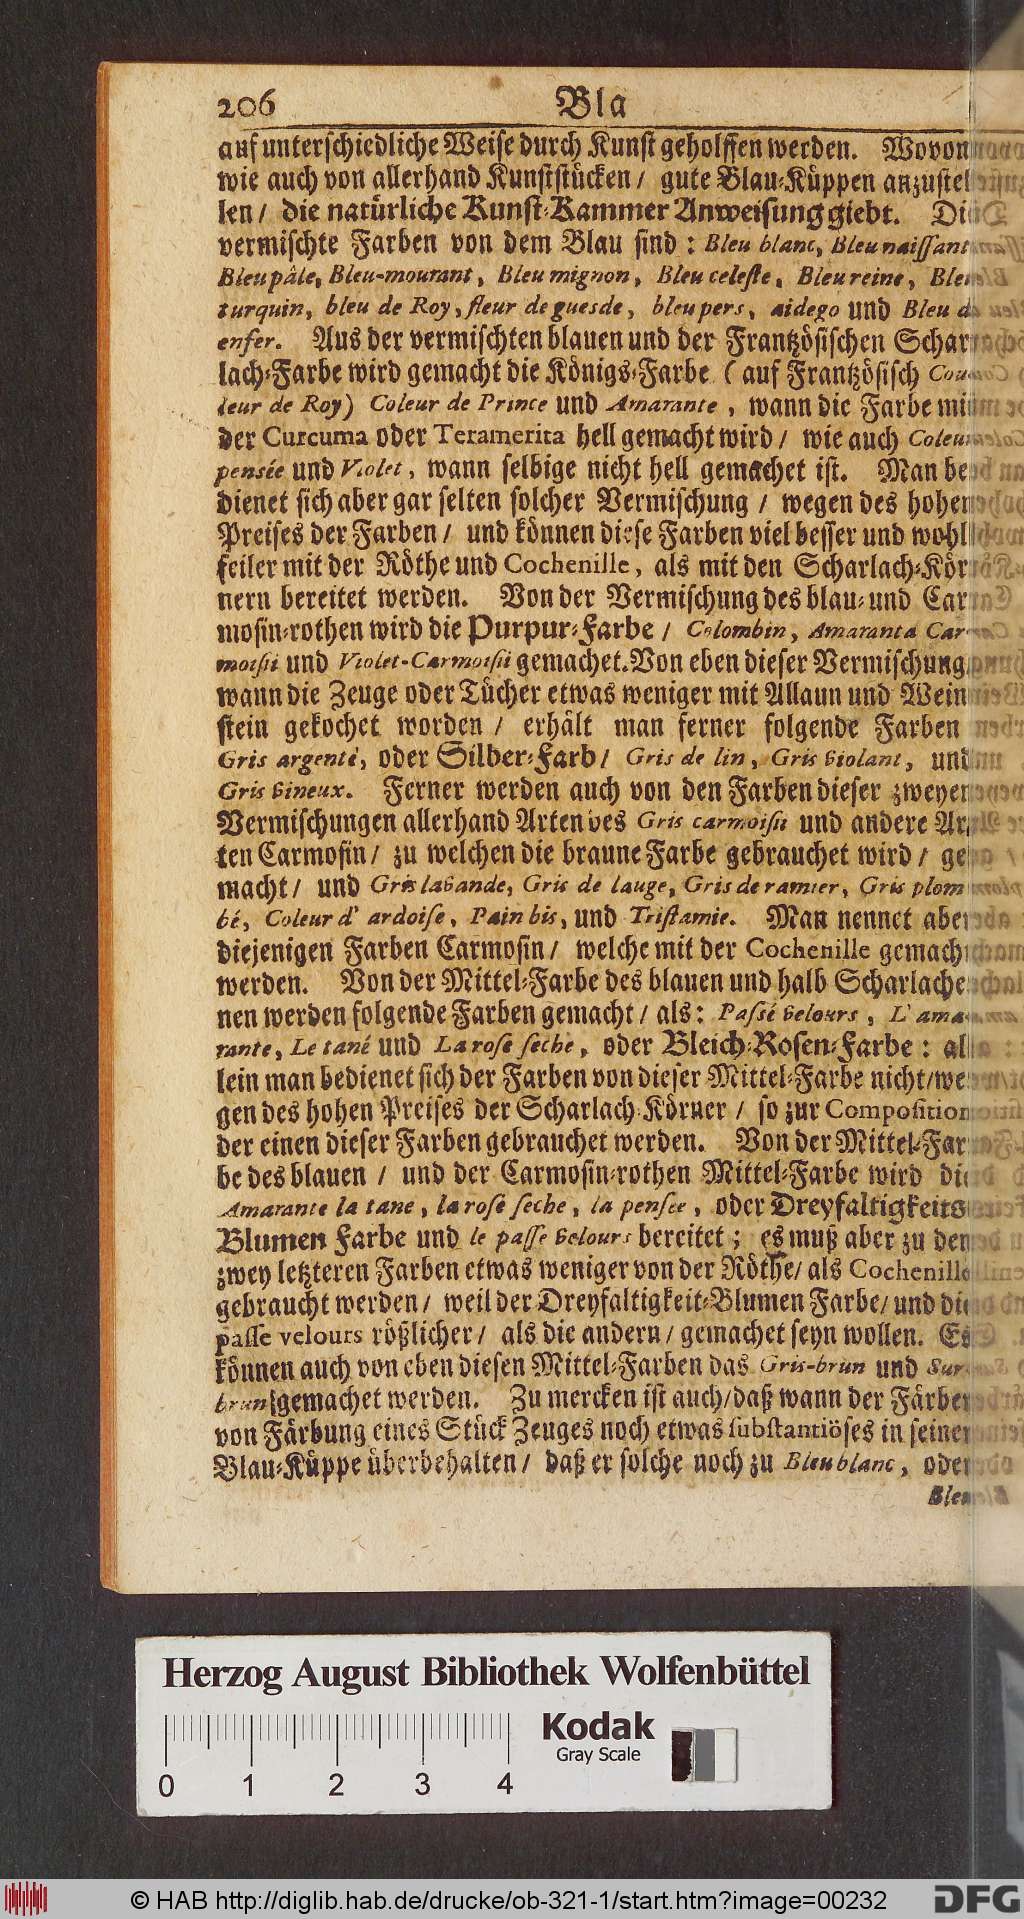 206 Bla
auf unterschiedliche Weise durch Kunst geholffen werden. Wovon
wie auch von allerhand Kunststücken / gute Blau-Küppen anzustel
len / die natürliche Kunst-Kammer Anweisung giebt. Di
vermischte Farben von dem Blau sind: Bleu blanc, Bleu naissant
Bleu pâle, Bleu-mourant, Bleu mignon, Bleu celeste, Bleu reine, Ble
turquin, bleu de Roy, fleur de guesde, bleu pers, aidego und Bleu d
enfer. Aus der vermischten blauen und der Frantzösischen Schar
lach-Farbe wird gemacht die Königs-Farbe (auf Frantzösisch Cou
leur de Roy) Coleur de Prince und Amarante, wann die Farbe mi
der Curcuma oder Teramerita hell gemacht wird / wie auch Coleu
pensée und Violet, wann selbige nicht hell gemachet ist. Man be
dienet sich aber gar selten solcher Vermischung / wegen des hohen
Preises der Farben / und können diese Farben viel besser und wohl
feiler mit der Röthe und Cochenille, als mit den Scharlach-Kör
nern bereitet werden. Von der Vermischung des blau- und Car
mosin-rothen wird die Purpur-Farbe / Colombin, Amaranta Car
moisii und Violet-Carmoisii gemachet. Von eben dieser Vermischung
wann die Zeuge oder Tücher etwas weniger mit Allaun und Wein
stein gekochet worden / erhält man ferner folgende Farben
Gris argenté, oder Silber-Farb / Gris de lin, Gris violant, und
Gris vineux. Ferner werden auch von den Farben dieser zweyen
Vermischungen allerhand Arten des Gris carmoisii und andere Ar
ten Carmosin / zu welchen die braune Farbe gebrauchet wird / ge
macht / und Gris lavande, Gris de lauge, Gris de ramier, Gris plom
bé, Coleur d' ardoise, Pain bis, und Tristamie. Man nennet aber
diejenigen Farben Carmosin / welche mit der Cochenille gemach
werden. Von der Mittel-Farbe des blauen und halb Scharlache
nen werden folgende Farben gemacht / als: Passé velours, L' ama
rante, Le tané und La rose seche, oder Bleich-Rosen-Farbe: al
lein man bedienet sich der Farben von dieser Mittel-Farbe nicht / we
gen des hohen Preises der Scharlach-Körner / so zur Composition
der einen dieser Farben gebrauchet werden. Von der Mittel-Far
be des blauen / und der Carmosin-rothen Mittel-Farbe wird die
Amarante la tane, la rose seche, la pensee, oder Dreyfaltigkeits
Blumen Farbe und le passe velours bereitet; es muß aber zu den
zwey letzteren Farben etwas weniger von der Röthe / als Cochenille
gebraucht werden / weil der Dreyfaltigkeit-Blumen Farbe / und die
passe velours rößlicher / als die andern / gemachet seyn wollen. Es
können auch von eben diesen Mittel-Farben das Gris-brun und Sur
brun gemachet werden. Zu mercken ist auch / daß wann der Färber
von Färbung eines Stück Zeuges noch etwas substantiöses in seiner
Blau-Küppe überbehalten / daß er solche noch zu Bleu blanc, oder
Bleu
Herzog August Bibliothek Wolfenbüttel
Kodak
Gray Scale
0 1 2 3 4
© HAB http://diglib.hab.de/drucke/ob-321-1/start.htm?image=00232 DFG